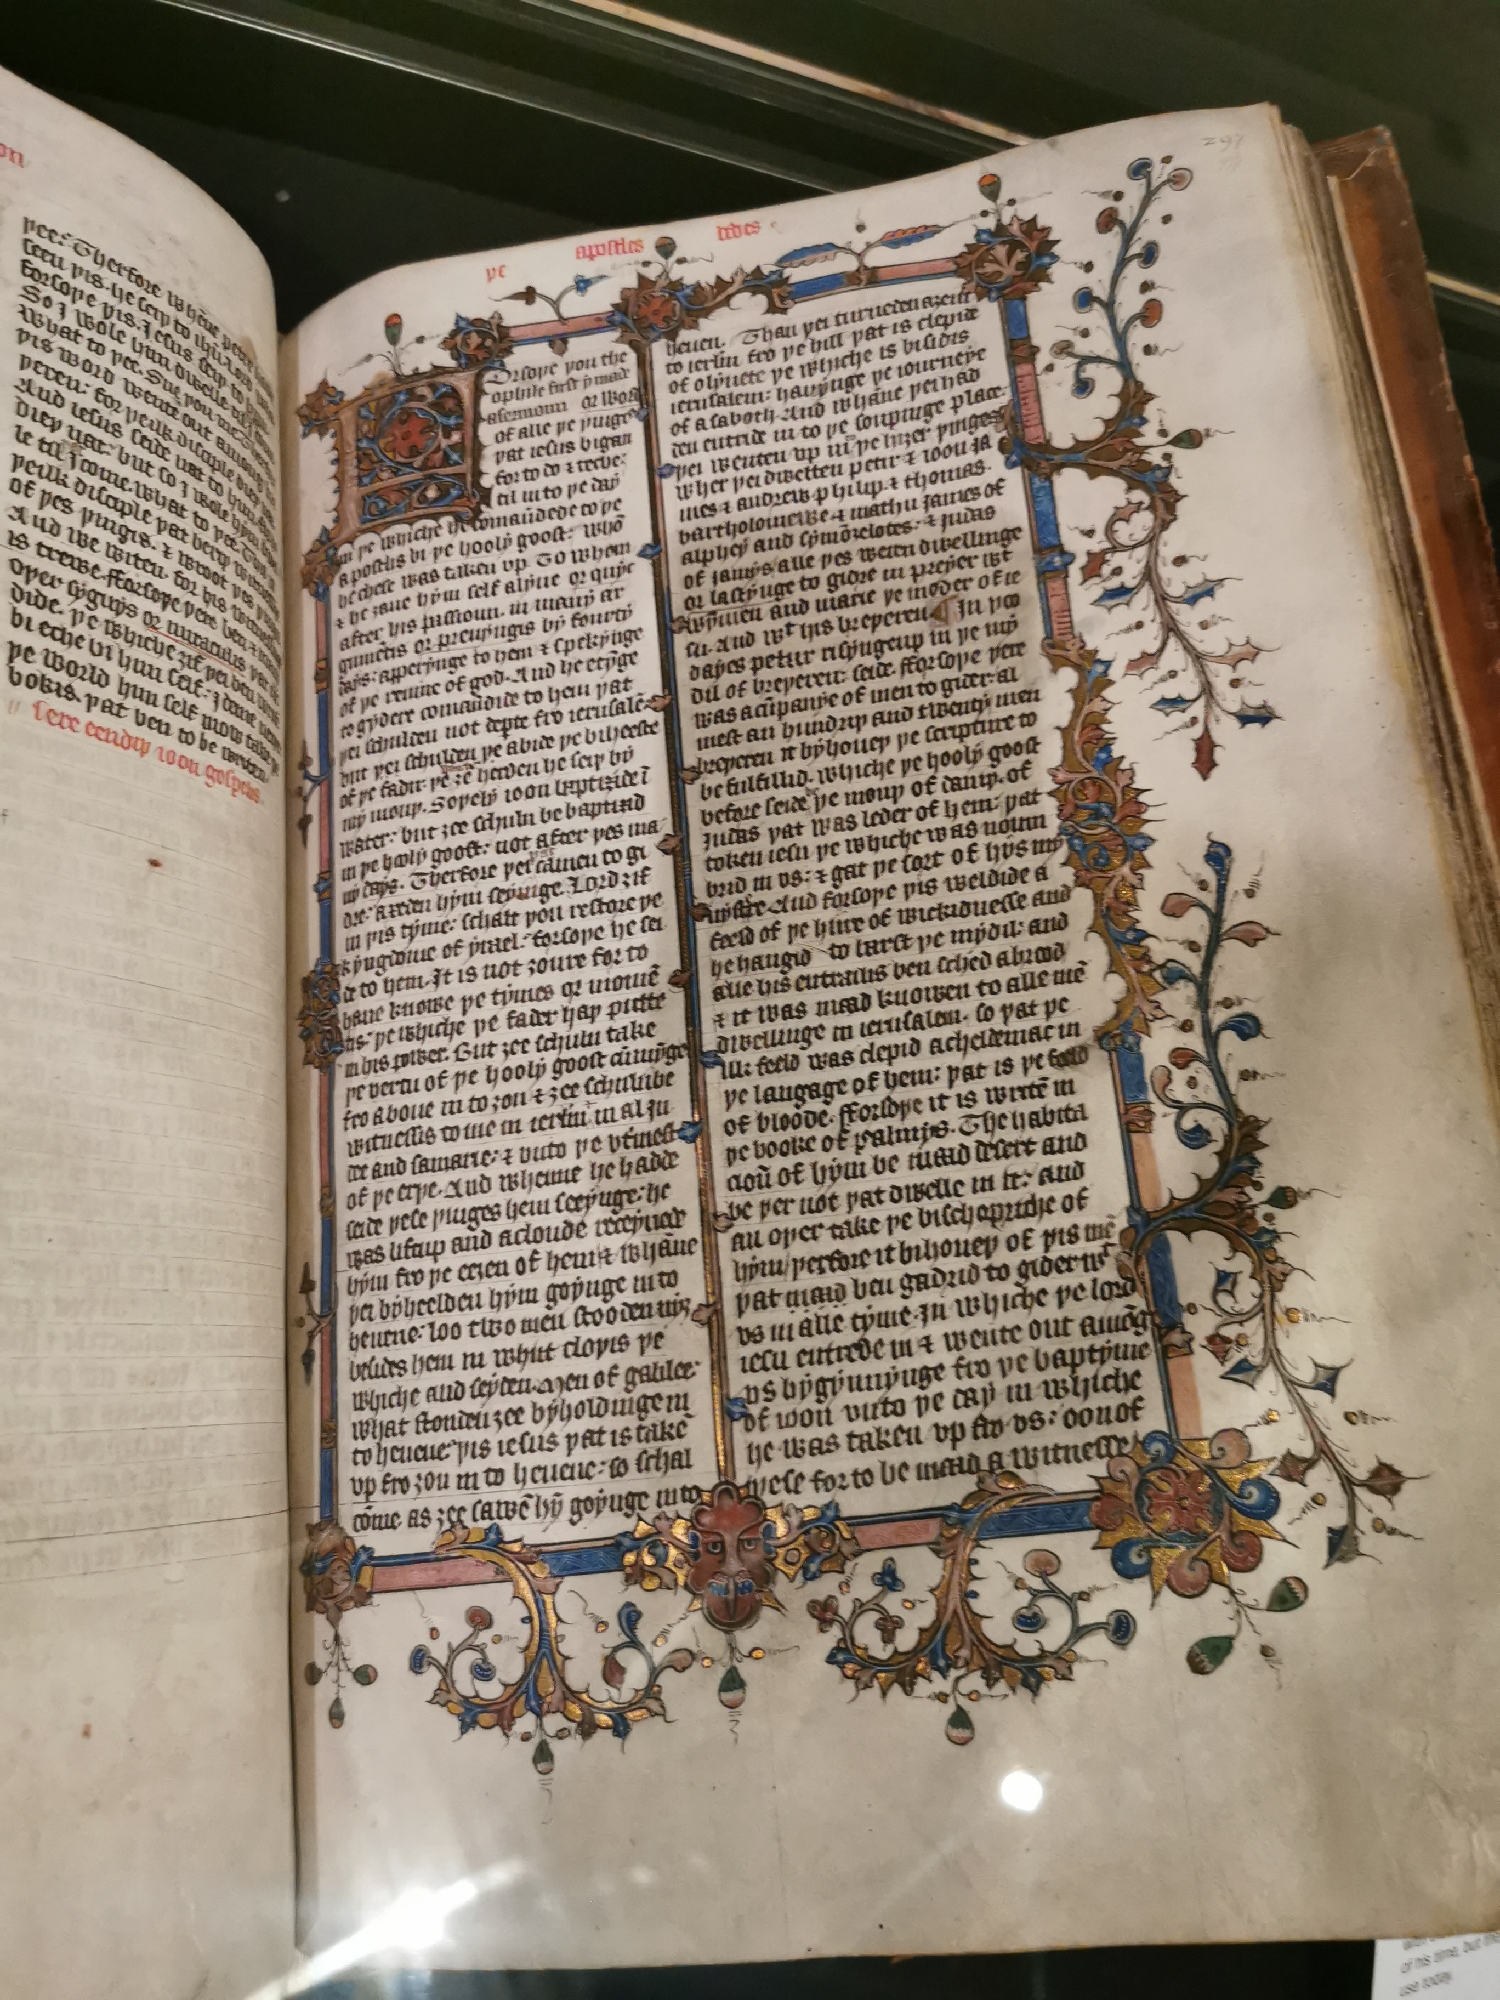 on
yee: Therfore whēne petre
seen yis. he seiy to ihū Lord
forsoye yis. Jesus seiy to
So J wole him dwelle til
What to yee. Sue you me
yis word wente out among
yeren: for yeilk disciple
And iesus seide nat to hym
diey nat: but so J wole hym
le til J come. what to yee. Yis
yeilk disciple yat beriy witnessing
of yes yingis. & wroot yes yingis
And we witen. for his witnessing
is trewe. fforsoye yere ben &
oyer sygnys or miraculis yat
dide. ye whiche zif yei ben
bi eche bi him self: J deme
ye world him self mow take
bokis. yat ben to be writen.
Here eendiy ioon gospels.
ye apostles dedes
297
Orsoye you the
ophile first y made
a sermoun or word
of alle ye yinges
yat iesus bigan
for to do & teche:
til in to ye day
in ye whiche he comaūdede to ye
apostlis bi ye hooly goost: whō
he chese was taken vp. To whom
& he zaue hym self alyue or quyc
after his passioun. in many ar
gumētis or preuyngis by fourty
days: apperynge to hem & spekynge
of ye rewme of god. And he etyge
to gydere comaūdide to hem yat
yei schulden not depte fro ierusalē
but yei schulden ye abide ye biheeste
of ye fadir: ye zē herden he seiy by
my mouy. Soyely ioon baptizide ī
water: but zee schuln be baptizid
in ye hooly goost: not after yes ma
ny days. Therfore yei camen to gi
dre: axeden hym seyinge. Lord zif
in yis tyme: schalt you restore ye
kyngdome of yrael: forsoye he sei
de to hem. It is not zoure for to
haue knowe ye tymes or momē
tis: ye whiche ye fader hay putte
in his power. But zee schuln take
ye vertu of ye hooly goost cūmyge
fro aboue in to zou & zee schuln be
witnessis to me in ierlm in al ju
dee and samarie: & vnto ye vtmest
of ye erye. And whenne he hadde
seide yese yinges hem seeynge: he
was lift up and a cloude receyuede
hym fro ye eezen of hem & whāne
yei byheelden hym goynge in to
heuene: loo two men stooden niz
besides hem in whijt cloyis ye
whiche and seyden. Men of galilee:
what stonden zee byholdinge in
to heuene: yis iesus yat is takē
vp fro zou in to heuene: so schal
cōme as zee sawē hȳ goynge in to
heuen. Than yei turneden azein
to ierlm fro ye hill yat is clepide
of olyuete ye whiche is bisidis
ierusalem: hauynge ye iourneye
of a saboth. And whane yei had
den entride in to ye soupinge place.
yei wenten vp in ye hizer yinges
wher yei dwelten petir & ioon ja
mes & andrew philip. & thomas.
bartholomewe & mathu James of
alphey and symōzelotes: & Judas
of jamys. alle yes weren dwellinge
or lastynge to gidre in preyer wt
wymmen and marie ye moder of ie
su. And wt his breyeren In yoo
dayes petur risynge up in ye my
dil of breyeren: seide. fforsoye yere
was a cūpanye of men to gider: al
mest an hundriy and twenty men
breyeren it byhouey ye scripture to
be fulfillid. whiche ye hooly goost
before seide ye mouy of dauiy. of
Judas yat was leder of hem: yat
token iesu ye whiche was noum
brid in vs: & gat ye sort of hys my
nystre. And forsoye yis weldide a
feeld of ye hire of wickidnesse and
he hangid to barst ye mydil: and
alle his entrailis ben sched abrood
& it was maad knowen to alle mē
dwellinge in ierusalem. so yat ye
ilk: feeld was clepid acheldemac in
ye langage of hem: yat is ye feeld
of bloode. fforsoye it is writē in
ye booke of psalmys. The habita
cioū of hym be maad desert and
be yer not yat dwelle in it: and
an oyer take ye bischopriche of
hym. yerfore it bihouey of yis mē
yat maid ben gadrid to gider wt
vs in alle tyme. In whiche ye lord
iesu entrede in & wente out amōg
vs bygynnynge fro ye baptyme
of ioon vnto ye day in whiche
he was taken vp fro vs: oon of
yese for to be maad a witnesse
of his time, but the
use today